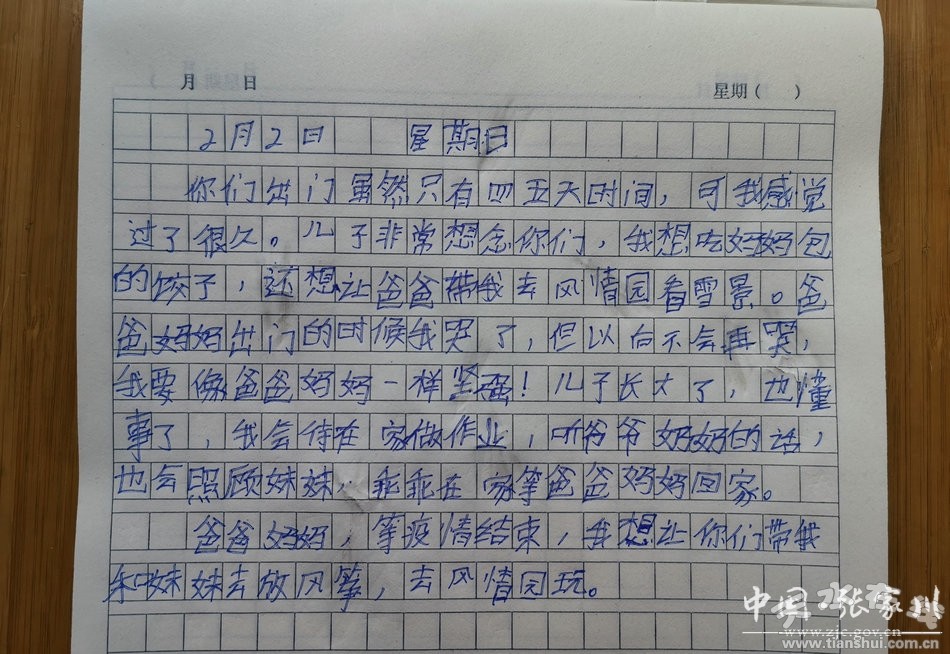 月 日 星期( )
2月2日 星期日
你们出门虽然只有四五天时间,可我感觉
过了很久。儿子非常想念你们,我想吃妈妈包
的饺子,还想让爸爸带我去风情园看雪景。爸
爸妈妈出门的时候我哭了,但以后不会再哭,
我要像爸爸妈妈一样坚强!儿子长大了,也懂
事了,我会待在家做作业,听爷爷奶奶的话,
也会照顾妹妹,乖乖在家等爸爸妈妈回家。
爸爸妈妈,等疫情结束,我想让你们带我
和妹妹去放风筝,去风情园玩。
中国张家川
www.zjc.gov.cn
www.tianshui.com.cn